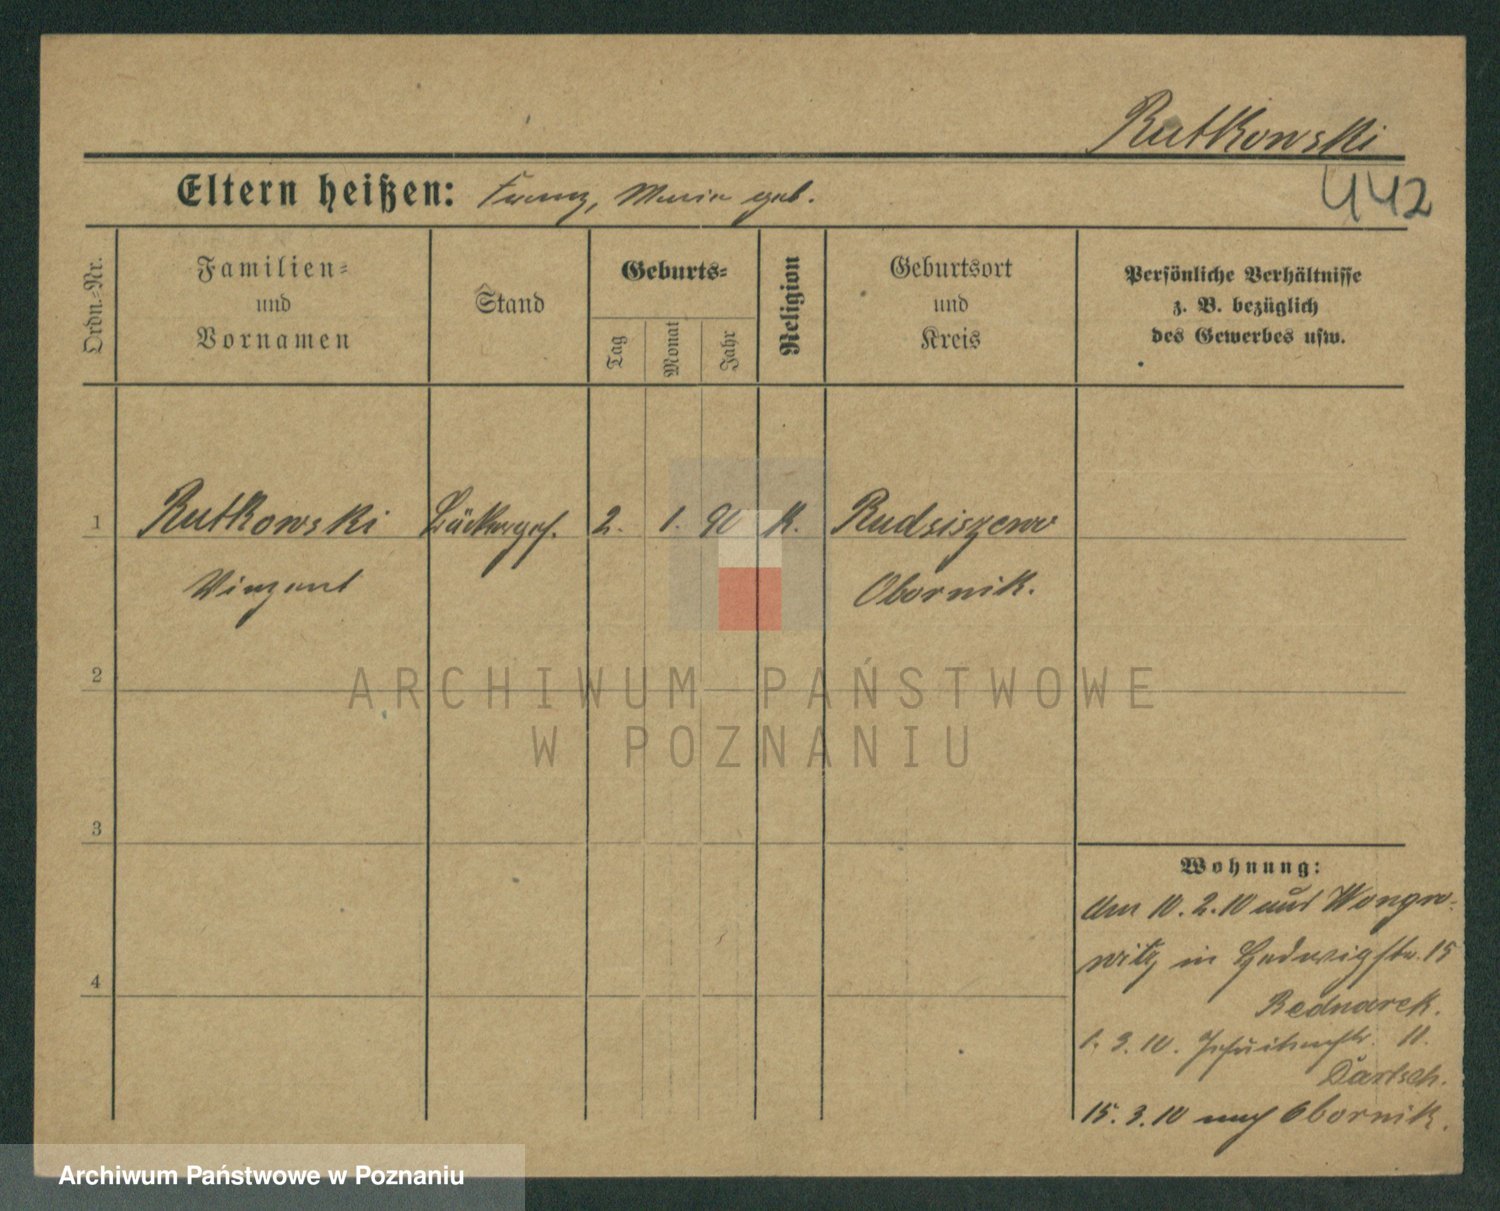 Rutkowski
442
Eltern heißen: Franz, Maria geb.
Ordn.-Nr.
Familien-
und
Vornamen
Stand
Geburts-
Tag
Monat
Jahr
Religion
Geburtsort
und
Kreis
Persönliche Verhältnisse
z. B. bezüglich
des Gewerbes usw.
1 Rutkowski Bäckerges. 2. 1. 90 K. Rudsiszewo
Vinzent Obornik.
2
3
4
Wohnung:
am 10.2.10 aus Wongro-
witz in Hedwigstr. 15
Bednarek.
1. 3. 10. Jesuitenstr. 11.
Bartsch.
15. 3. 10 nach Obornik.
ARCHIWUM PAŃSTWOWE
W POZNANIU
Archiwum Państwowe w Poznaniu